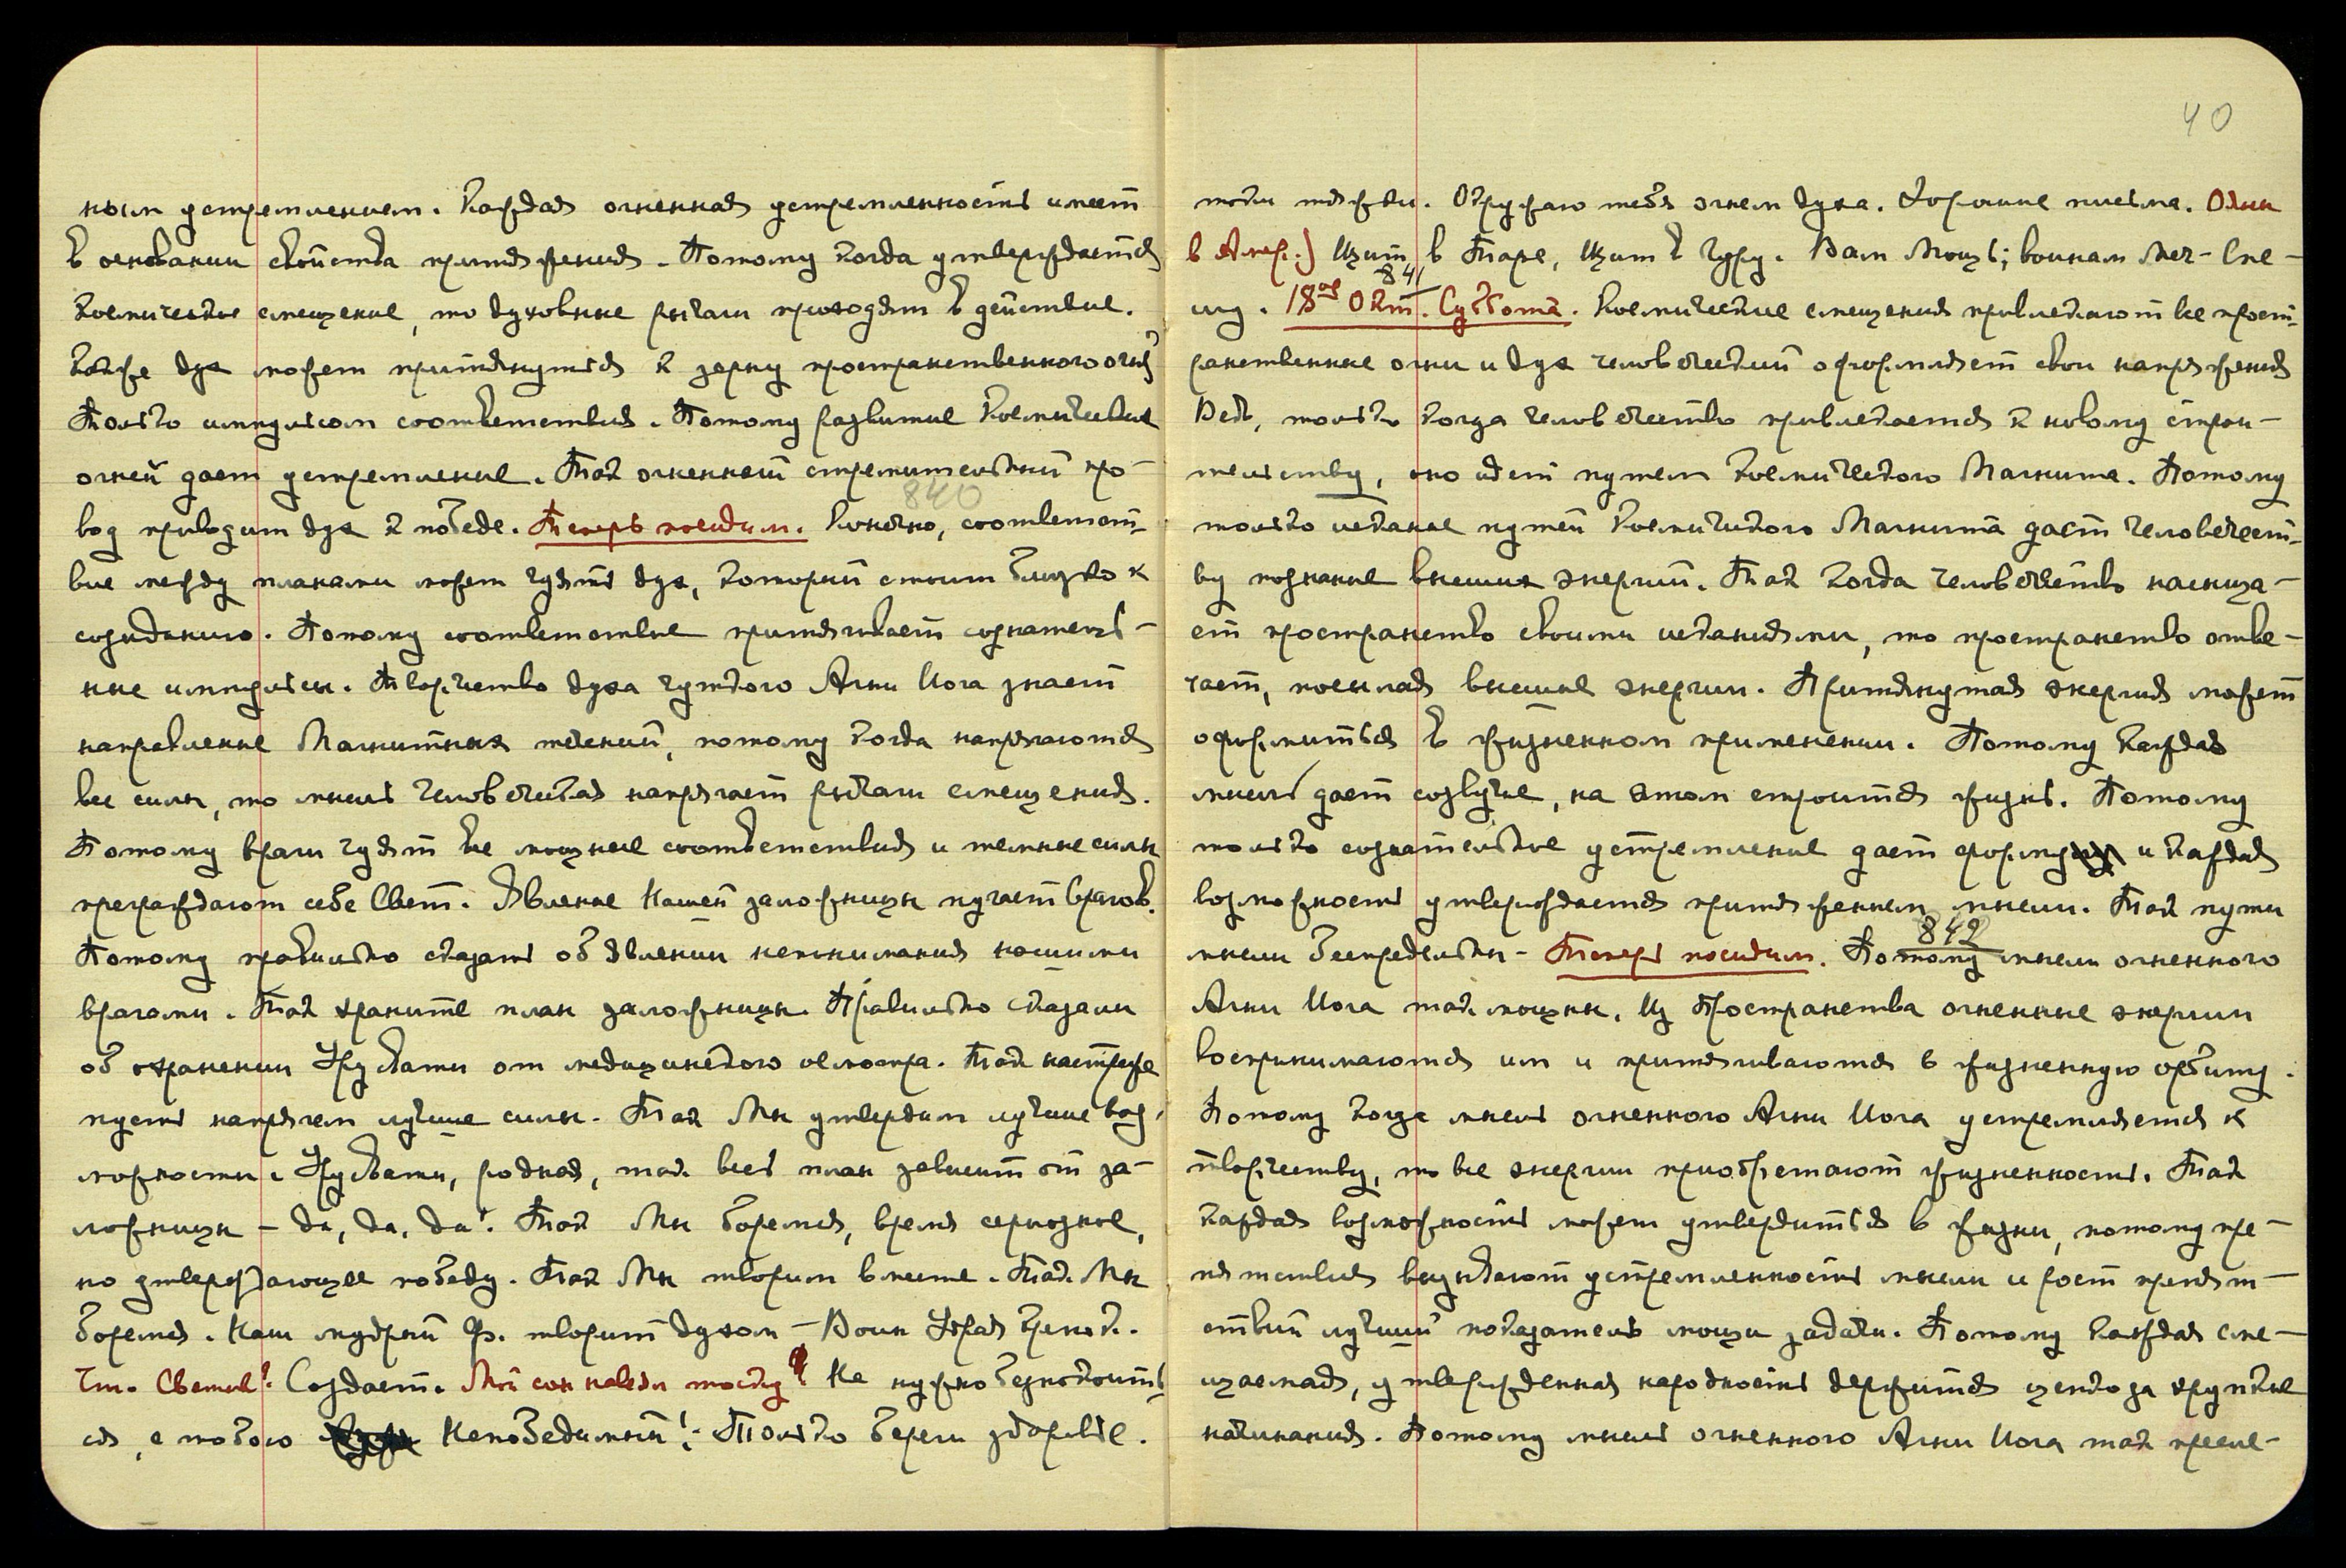 ным устремлением. Каждая огненная устремленность имеет
в основании свойства притяжения. Потому когда утверждается
космическое смещение, то духовные рычаги приходят в действие.
Также дух может притянуться к зерну пространственного огня
только импульсом соответствия. Потому развитие космических
огней дает устремление. Так огненный стремительный про-
840
вод приводит дух к победе. Теперь посидим. Конечно, соответст-
вие между планами может чуять дух, который стоит близко к
созиданию. Потому соответствие притягивает сознатель-
ные импульсы. Творчество духа чуткого Агни Йога знает
направление Магнитных течений, потому когда напрягаются
все силы, то мысль человеческая напрягает рычаги смещения.
Потому враги чуят все мощные соответствия и темные силы
преграждают себе Свет. Явление Нашей заложницы пугает врагов.
Потому правильно сказать об явлении непонимания нашими
врагами. Так храните план заложницы. Правильно сказали
об охранении Урусвати от медицинского осмотра. Так на страже
пусть напряжем лучшие силы. Так Мы утвердим лучшие воз-
можности. Урусвати, родная, так весь план зависит от за-
ложницы – да, да, да! Так Мы боремся, время серьезное,
но утверждающее победу. Так Мы творим вместе. Так Мы
боремся. Наш мудрый Ф. творит духом – Воин
Светл.! Создает. Мой сын навел тоску? Не нужно безпокоить
ся, с тобою Непобедимый! Только береги здоровье.
40
Округаю тебя огнем духа. Хорошие письма. Один
в Амер.) Щит в Таре, Щит в Гуру. Вам Мощь; воинам Меч – Спе-
841
шу. 18ое Окт. Суббота. Космические смещения привлекают все прост-
ранственные огни и дух человеческий оформляет свои напряжения
Ведь, только когда человечество привлекается к новому строи-
тельству, оно идет путем космического Магнита. Потому
только искание путей Космического Магнита дает человечест-
ву познание высших энергий. Так когда человечество насыща-
ет пространство своими исканиями, то пространство отве-
чает, посылая высшие энергии. Притянутая энергия может
оформиться в жизненном применении. Потому каждая
мысль дает созвучие, на этом строится жизнь. Потому
только сознательное устремление дает форму и каждая
возможность утверждается притяжением мысли. Так пути
842
мысли беспредельны – Теперь посидим. Потому мысли огненного
Агни Йога так мощны. Из Пространства огненные энергии
воспринимаются им и притягиваются в жизненную орбиту.
Потому когда мысль огненного Агни Йога устремляется к
творчеству, то все энергии приобретают жизненность. Так
каждая возможность может утвердиться в жизни, потому пре-
пятствия вызывают устремленность мысли и рост препят-
ствий лучший показатель мощи задачи. Потому каждая сме-
щаемая, утвержденная народность держится цепко за хрупкие
начинания. Потому мысль огненного Агни Йога так пресле-